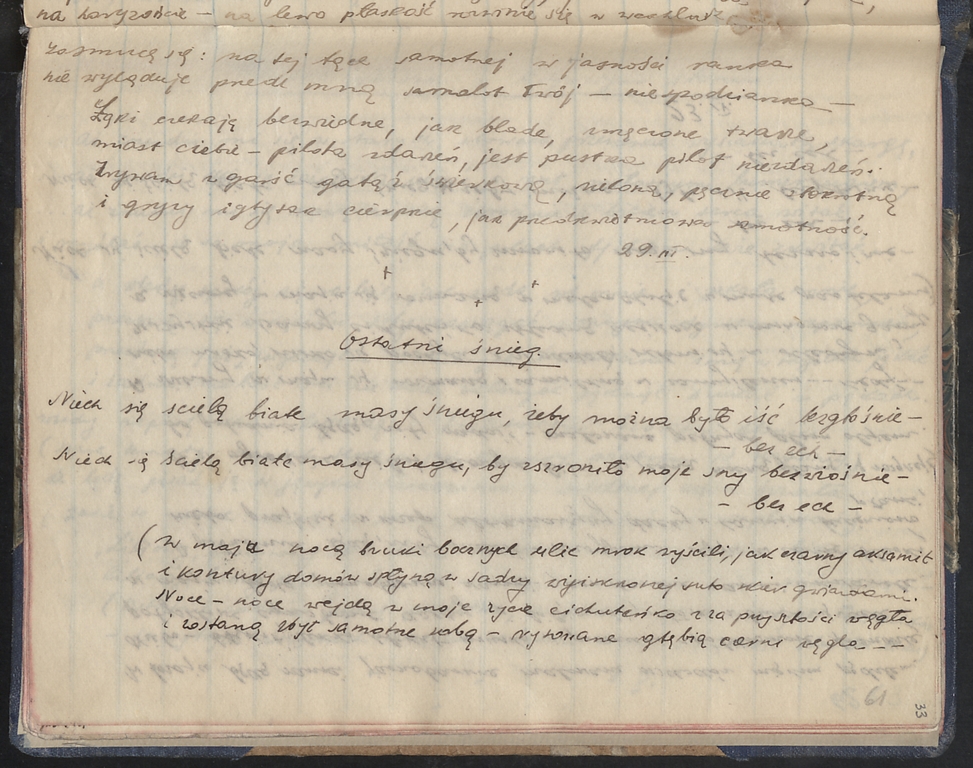 na horyzoncie — na lewo płaskość rozwinie się w
zasmucę się: na tej łące samotnej w jasności ranka
nie wyląduje przede mną samolot Twój — niespodzianka —
Łąki czekają bezwiedne, jak blade, zmęczone twarze,
miast ciebie — pilota zdarzeń, jest pustka pilot niezdarzeń.
Zrywam w garść gałąź świerkową, zieloną, pęcznie stokrotną
i gryzę igłyszcze cierpkie, jak przedkwietniowa samotność.
29. III.
+ + +
Ostatni śnieg.
Niech się ścielą białe masy śniegu, żeby można było iść bezgłośnie —
— bez ech —
Niech się ścielą białe masy śniegu, by zszroniło moje sny bezwiośnie —
— bez ech —
(W maju nocą bruki bocznych ulic mrok wyścili, jak czarny aksamit
i kontury domów spłyną w sadzy wyiskrzonej suto skier gwiazdami.
Noce — noce wejdą w moje życie cichuteńko zza przyszłości węgła
i zostaną zbyt samotne sobą — rysowane głębią czerni węgla — — —
61
33